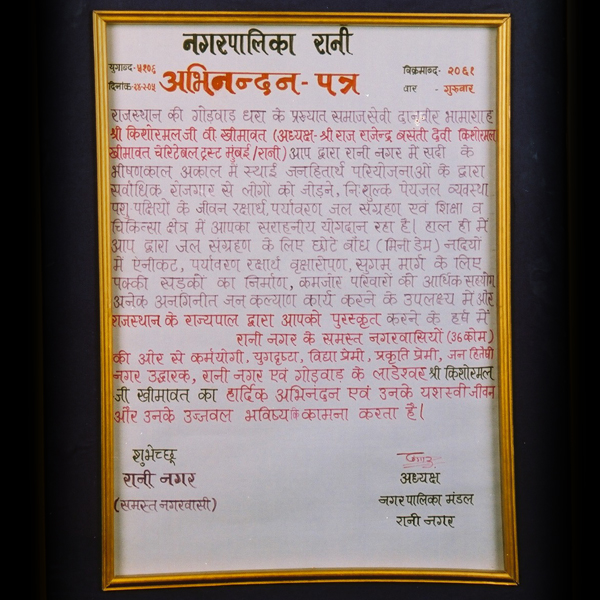 नगरपालिका रानी
युगाब्द- ५१०६
विक्रमाब्द- २०६१
अभिनन्दन - पत्र
दिनांक-
वार - गुरुवार
राजस्थान की गोडवाड धरा के प्रख्यात समाजसेवी दानवीर भामाशाह
श्री किशोरमल जी वी खीमावत (अध्यक्ष- श्री राज राजेन्द्र बसंती देवी किशोरमल
खीमावत चेरिटेबल ट्रस्ट मुंबई/रानी) आप द्वारा रानी नगर में सदी के
भीषणकाल अकाल में स्थाई जनहितार्थ परियोजनाओं के द्वारा
सर्वाधिक रोजगार से लोगों को जोड़ने, निःशुल्क पेयजल व्यवस्था
पशु पक्षियों के जीवन रक्षार्थ, पर्यावरण जल संग्रहण एवं शिक्षा व
चिकित्सा क्षेत्र में आपका सराहनीय योगदान रहा है। हाल ही में
आप द्वारा जल संग्रहण के लिए छोटे बाँध (मिनी डेम) नदियों
में ऐनीकट, पर्यावरण रक्षार्थ वृक्षारोपण, सुगम मार्ग के लिए
पक्की सड़कों का निर्माण, कमजोर परिवारों की आर्थिक सहयोग
अनेक अनगिनीत जन कल्याण कार्य करने के उपलक्ष्य में और
राजस्थान के राज्यपाल द्वारा आपको पुरस्कृत करने के हर्ष में
रानी नगर के समस्त नगरवासियों (36 कोम)
की ओर से कर्मयोगी, युगदृष्टा, विद्या प्रेमी, प्रकृति प्रेमी, जन हितेषी
नगर उद्धारक, रानी नगर एवं गोडवाड के लाडेश्वर श्री किशोरमल
जी खीमावत का हार्दिक अभिनंदन एवं उनके यशस्वी जीवन
और उनके उज्जवल भविष्य कि कामना करता है।
शुभेच्छु
रानी नगर
अध्यक्ष
(समस्त नगरवासी)
नगरपालिका मंडल
रानी नगर